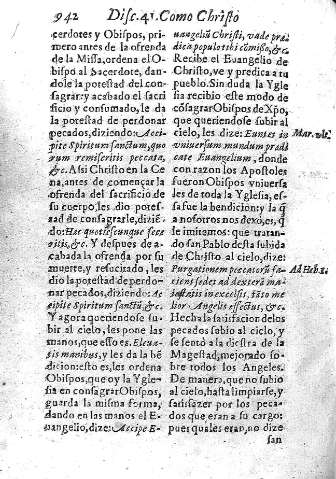 942 Disc. 41. Como Christo
cerdotes y Obispos, pri-
mero antes de la ofrenda
de la Missa, ordena el O-
bispo al Sacerdote, dan-
dole la potestad del con-
sagrar: y acabado el sacri
ficio y consumado, le da
la potestad de perdonar
pecados, diziendo: Acci-
pite Spiritum sanctum, quo
rum remiseritis peccata,
&c. Assi Christo en la Ce
na, antes de començar la
ofrenda del sacrificio de
su cuerpo, les dio potes-
tad de consagrarle, diziē-
do: Hæc quotiescunque fece
ritis, &c. Y despues de a-
cabada la ofrenda por su
muerte, y resucitado, les
dio la potestad de perdo-
nar pecados, diziendo: Ac-
cipite Spiritum sanctum, &c.
Y agora queriendose su-
bir al cielo, les pone las
manos, que esso es, Eleua-
tis manibus, y les da la bē
dicion: esto es, les ordena
Obispos, que oy la Ygle-
sia en consagrar Obispos,
guarda la misma forma,
dando en las manos el E-
uangelio, dize: Accipe E-
uangelium Christi, vade præ
dica populo tibi cōmisso, &c.
Recibe el Euangelio de
Christo, ve y predica a tu
pueblo. Sin duda la Ygle
sia recibio este modo de
cōsagrar Obispos de Xpo,
que queriendose subir al
cielo, les dize: Euntes in
vniuersum mundum prædi
cate Euangelium, donde
con razon los Apostoles
fueron Obispos vniuersa
les de toda la Yglesia, es-
sa fue la bendicion: y la q̄
a nosotros nos dexo, es, q̄
le imitemos: que tratan-
do san Pablo desta subida
de Christo al cielo, dize:
Purgationem peccatorū fa-
ciens sedes ad dexterā ma-
iestatis in excelsis, tāto me
lior Angelis effectus, &c.
Hecha la satisfacion de los
pecados subio al cielo, y
se sentò a la diestra de la
Magestad, mejorado so-
bre todos los Angeles.
De manera, que no subio
al cielo, hasta limpiarse, y
satisfazer por los peca-
dos que eran a su cargo:
pues quales eran, no dize
san
Mar. vlt.
Ad Heb. 1.